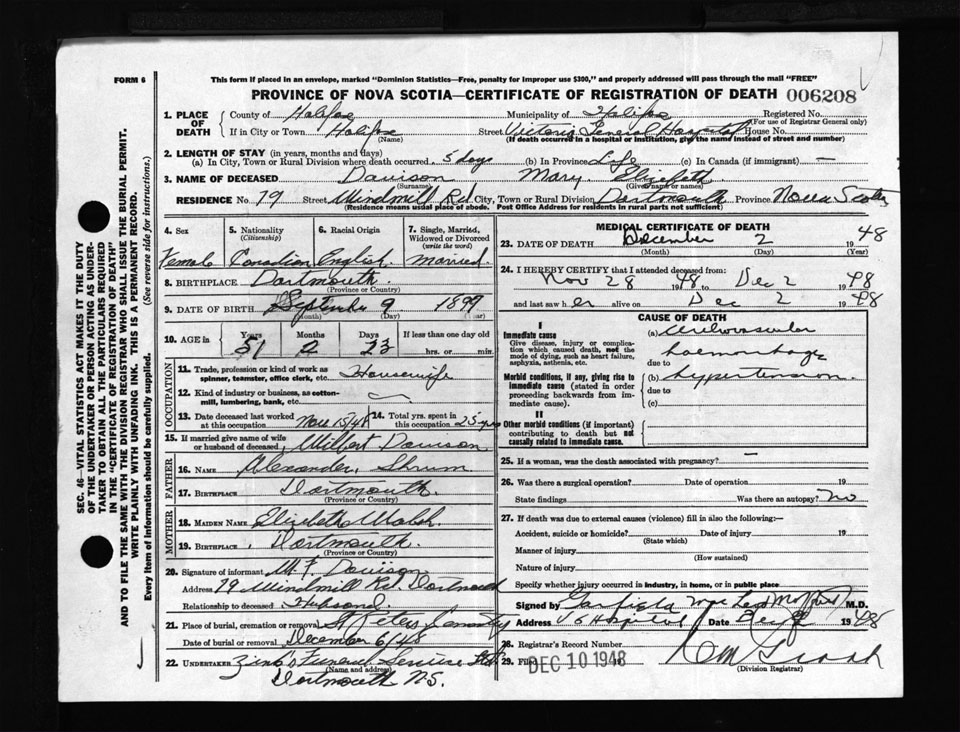 FORM 6
This form if placed in an envelope, marked "Dominion Statistics—Free, penalty for improper use $300," and properly addressed will pass through the mail "FREE"
PROVINCE OF NOVA SCOTIA—CERTIFICATE OF REGISTRATION OF DEATH 006208
1. PLACE OF DEATH
County of Halifax Municipality of Halifax Registered No.
(For use of Registrar General only)
If in City or Town Halifax Street Victoria General Hospital House No.
(Name) (If death occurred in a hospital or institution, give the name instead of street and number)
2. LENGTH OF STAY (in years, months and days)
(a) In City, Town or Rural Division where death occurred 5 days (b) In Province Life (c) In Canada (if immigrant) —
3. NAME OF DECEASED Davison Mary Elizabeth
(Surname) (Given name or names)
RESIDENCE No. 79 Street Windmill Rd. City, Town or Rural Division Dartmouth Province Nova Scotia
(Residence means usual place of abode. Post Office Address for residents in rural parts not sufficient)
4. Sex 5. Nationality (Citizenship) 6. Racial Origin 7. Single, Married, Widowed or Divorced (write the word)
Female Canadian English Married.
8. BIRTHPLACE Dartmouth.
(Province or Country)
9. DATE OF BIRTH September 9 1897
(Month) (Day) (Year)
10. AGE in Years Months Days If less than one day
51 2 23 hrs. or min.
OCCUPATION
11. Trade, profession or kind of work as spinner, teamster, office clerk, etc. Housewife
12. Kind of industry or business, as cotton-mill, lumbering, bank, etc.
13. Date deceased last worked at this occupation Nov 15/48 14. Total yrs. spent in this occupation 25 yrs
15. If married give name of wife or husband of deceased Wilbert Davison
FATHER
16. NAME Alexander Shrum
17. BIRTHPLACE Dartmouth.
(Province or Country)
MOTHER
18. MAIDEN NAME Elizabeth Walsh.
19. BIRTHPLACE Dartmouth.
(Province or Country)
20. Signature of informant W. F. Davison
Address 79 Windmill Rd. Dartmouth
Relationship to deceased Husband.
21. Place of burial, cremation or removal St Peters Cemetery
Date of burial or removal December 6/48
22. UNDERTAKER Zink's Funeral Service Ltd.
(Name and address)
Dartmouth N.S.
MEDICAL CERTIFICATE OF DEATH
23. DATE OF DEATH December 2 1948
(Month) (Day)
24. I HEREBY CERTIFY that I attended deceased from:
Nov 28 1948 to Dec 2 1948
and last saw her alive on Dec 2 1948
CAUSE OF DEATH
I
Immediate cause
Give disease, injury or complication which caused death, not the mode of dying, such as heart failure, asphyxia, asthenia, etc.
(a) cerebrovascular
haemorrhage
due to
Morbid conditions, if any, giving rise to immediate cause (stated in order proceeding backwards from immediate cause).
(b) hypertension.
due to
(c)
II
Other morbid conditions (if important) contributing to death but not causally related to immediate cause.
25. If a woman, was the death associated with pregnancy? —
26. Was there a surgical operation? Date of operation 19
State findings Was there an autopsy? no
27. If death was due to external causes (violence) fill in also the following:—
Accident, suicide or homicide? Date 19
(State which)
Manner of injury
(How sustained)
Nature of injury
Specify whether injury occurred in industry, in home, or in public place
Signed by M.D.
Address V G Hospital Date Dec 1948
28. Registrar's Record Number
29. Filed DEC 10 1948
(Division Registrar)
SEC. 46—VITAL STATISTICS ACT MAKES IT THE DUTY
OF THE UNDERTAKER OR PERSON ACTING AS UNDERTAKER TO OBTAIN ALL THE PARTICULARS REQUIRED
IN THE "CERTIFICATE OF REGISTRATION OF DEATH"
AND TO FILE THE SAME WITH THE DIVISION REGISTRAR WHO SHALL ISSUE THE BURIAL PERMIT.
WRITE PLAINLY WITH UNFADING INK. THIS IS A PERMANENT RECORD.
Every item of information should be carefully supplied. (See reverse side for instructions.)